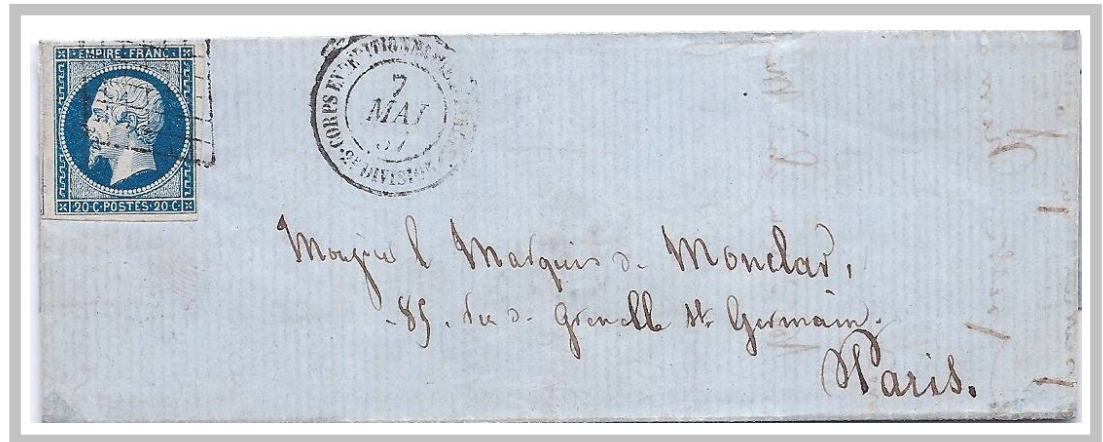 EMPIRE·FRANC·
20·C·POSTES·20·C·
CORPS EXPEDITIONNAIRE
7
MAI
57
2E DIVISION
Monsieur le Marquis de Monclar,
85. rue de Grenelle St. Germain.
Paris.